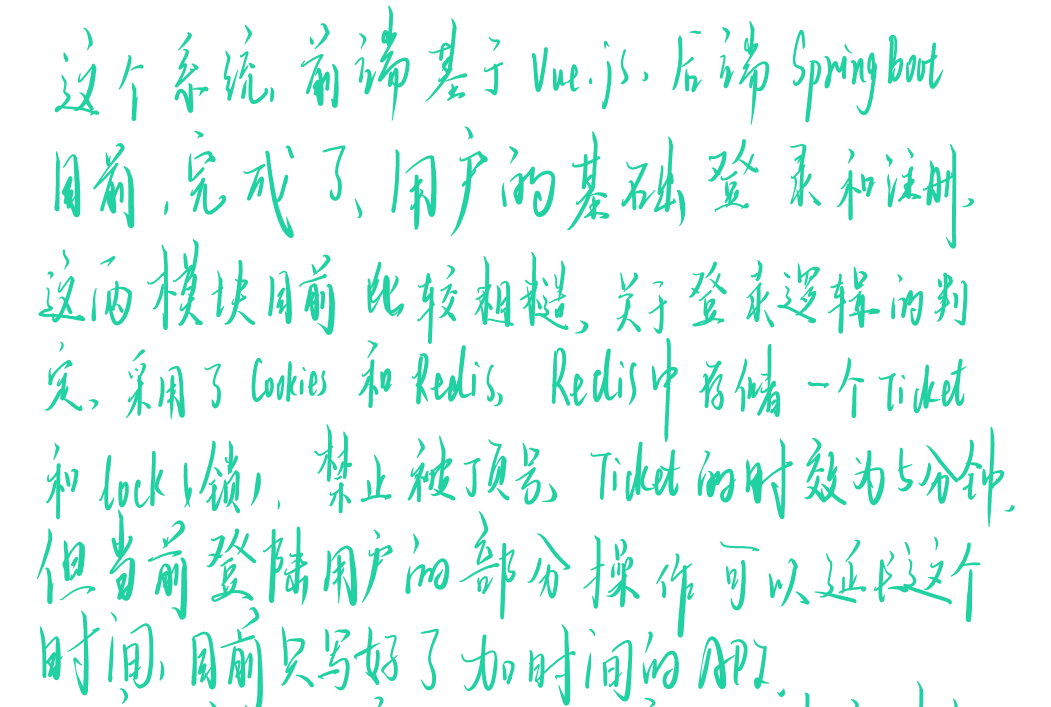 这个系统,前端基于Vue.js、后端SpringBoot
目前,完成了、用户的基础登录和注册,
这两模块目前比较粗糙、关于登录逻辑的判
定、采用了Cookies和Redis, Redis中存储一个Ticket
和lock(锁),禁止被顶号, Ticket的时效为5分钟,
但当前登陆用户的部分操作可以延长这个
时间,目前只写好了加时间的API.